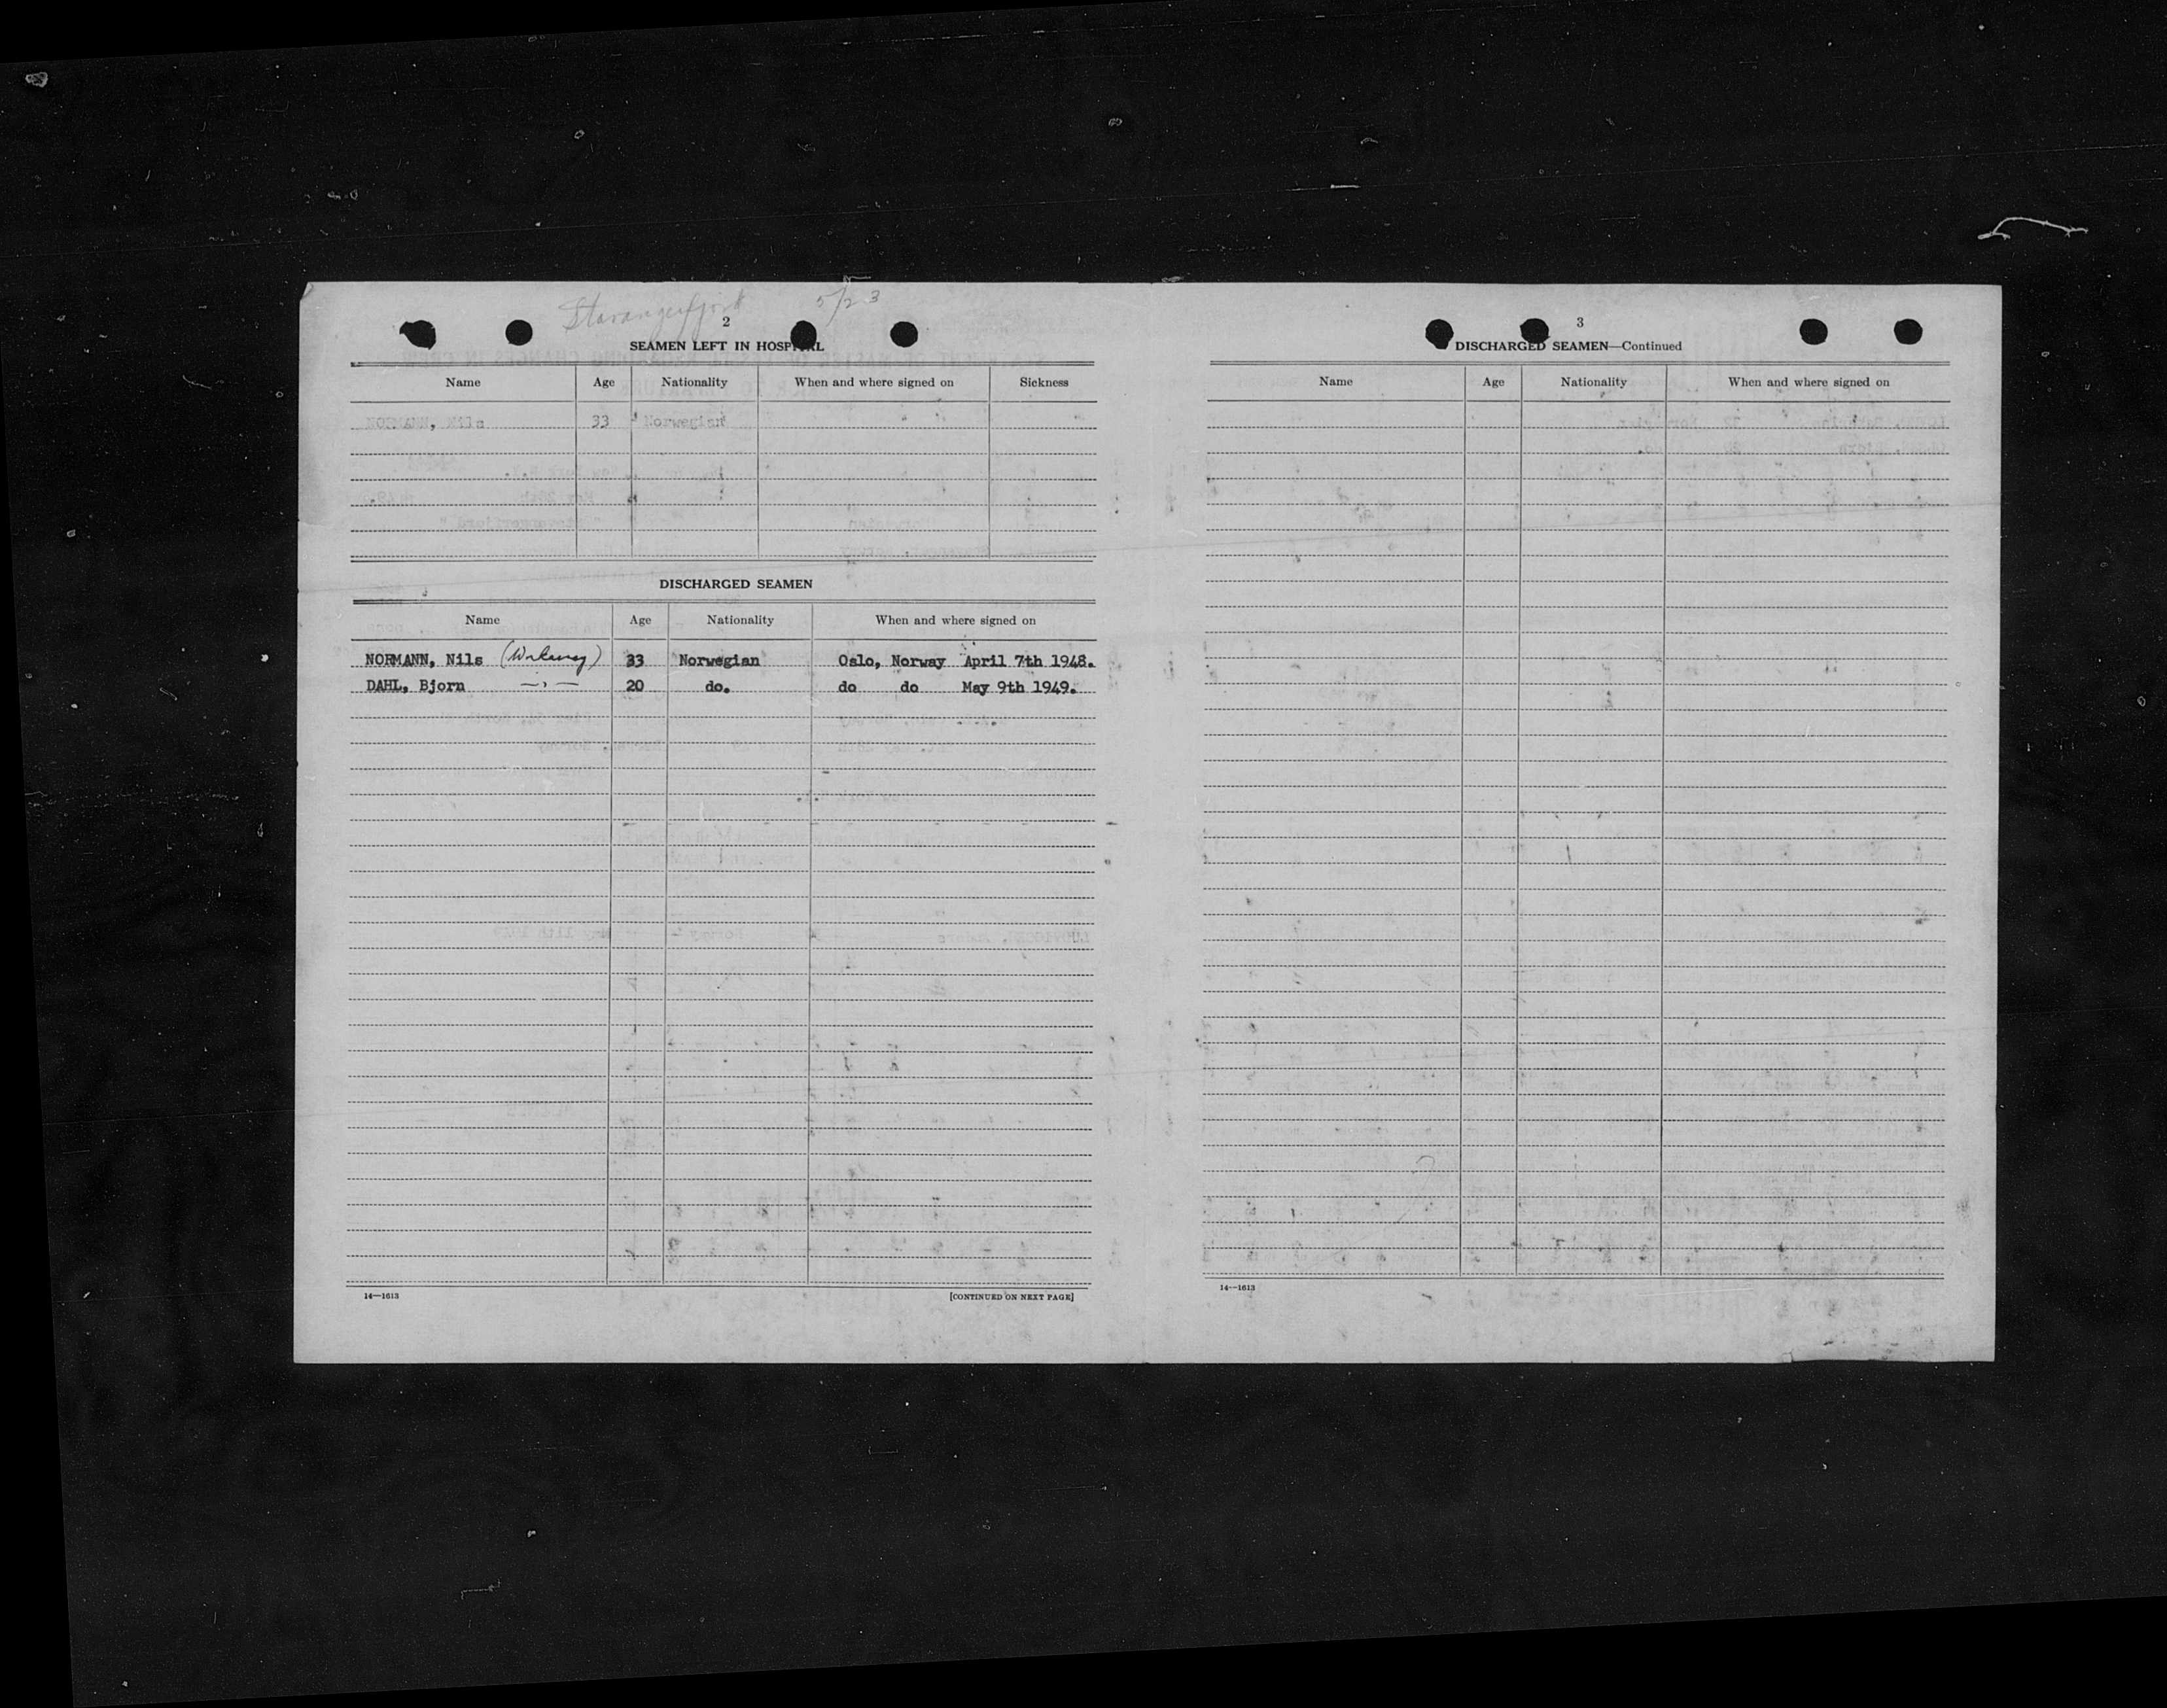 Stavangerfjord 5/23
2
SEAMEN LEFT IN HOSPITAL
Name Age Nationality When and where signed on Sickness
NORMANN, Nils 33 Norwegian
DISCHARGED SEAMEN
Name Age Nationality When and where signed on
NORMANN, Nils 33 Norwegian Oslo, Norway April 7th 1948.
DAHL, Bjorn —"— 20 do. do do May 9th 1949.
14—1613 [CONTINUED ON NEXT PAGE]
3
DISCHARGED SEAMEN—Continued
Name Age Nationality When and where signed on
14—1613